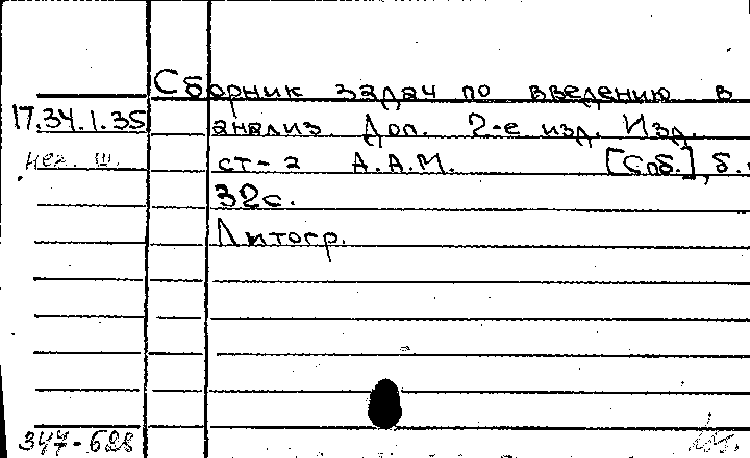 Сборник задач по введению в
17.34.1.35 анализ. Доп. 2-е изд. Изд.
ст-а А.А.М. [Спб.], б.
32 с.
Литогр.
347-628